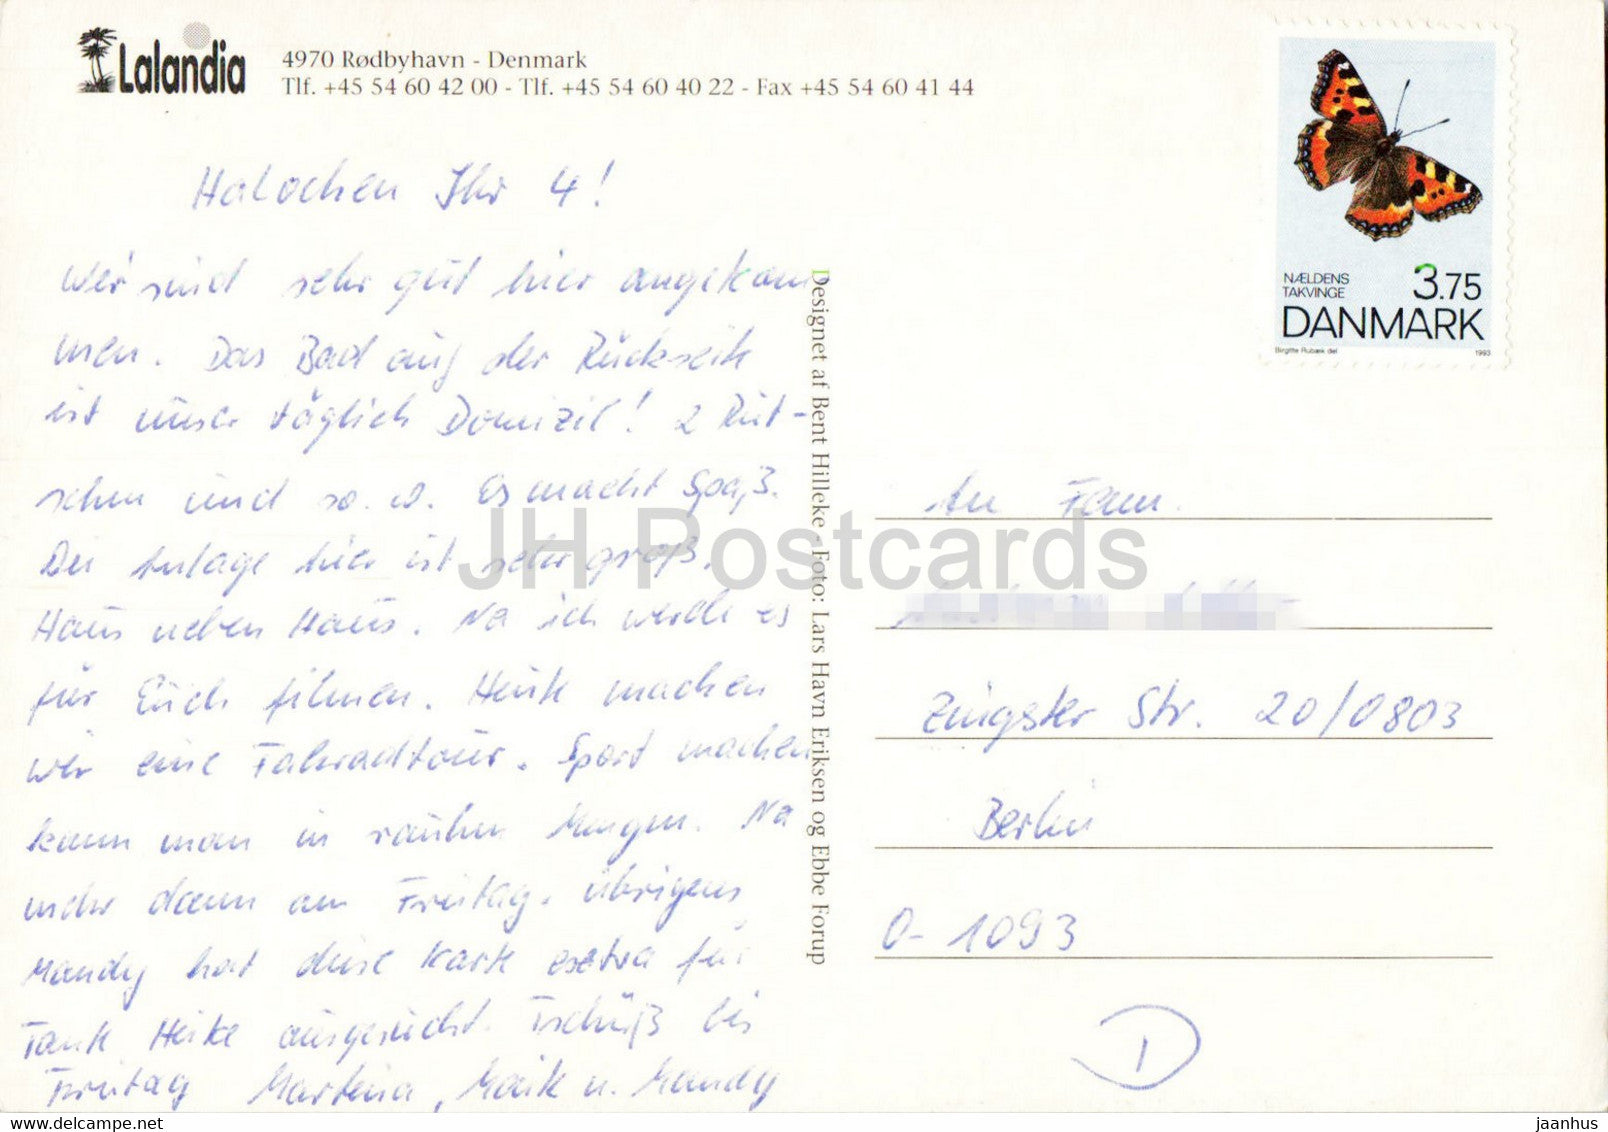 Lalandia
4970 Rødbyhavn - Denmark
Tlf. +45 54 60 42 00 - Tlf. +45 54 60 40 22 - Fax +45 54 60 41 44
Halochen Ihr 4!
Wir sind sehr gut hier angekom
men. Das Bad auf der Rückseite
ist unser täglich Domizil! 2 Rut-
schen und so. w. Es macht Spaß.
Die Anlage hier ist sehr groß.
Haus neben Haus. Na ich werde es
für Euch filmen. Heute machen
wir eine Fahradtour. Sport machen
kann man in rauhen Mengen. Na
mehr dann am Freitag. Übrigens
Mandy hat diese Karte extra für
Tante Heike ausgesucht. Tschüß bis
Freitag Martina, Maik u. Mandy
Designet af Bent Hilleke - Foto: Lars Havn Eriksen og Ebbe Forup
NÆLDENS
TAKVINGE
3.75
DANMARK
Birgitte Rubæk del
1993
An Fam.
Zingster Str. 20/0803
Berlin
O-1093
D
JH Postcards
jaanhus